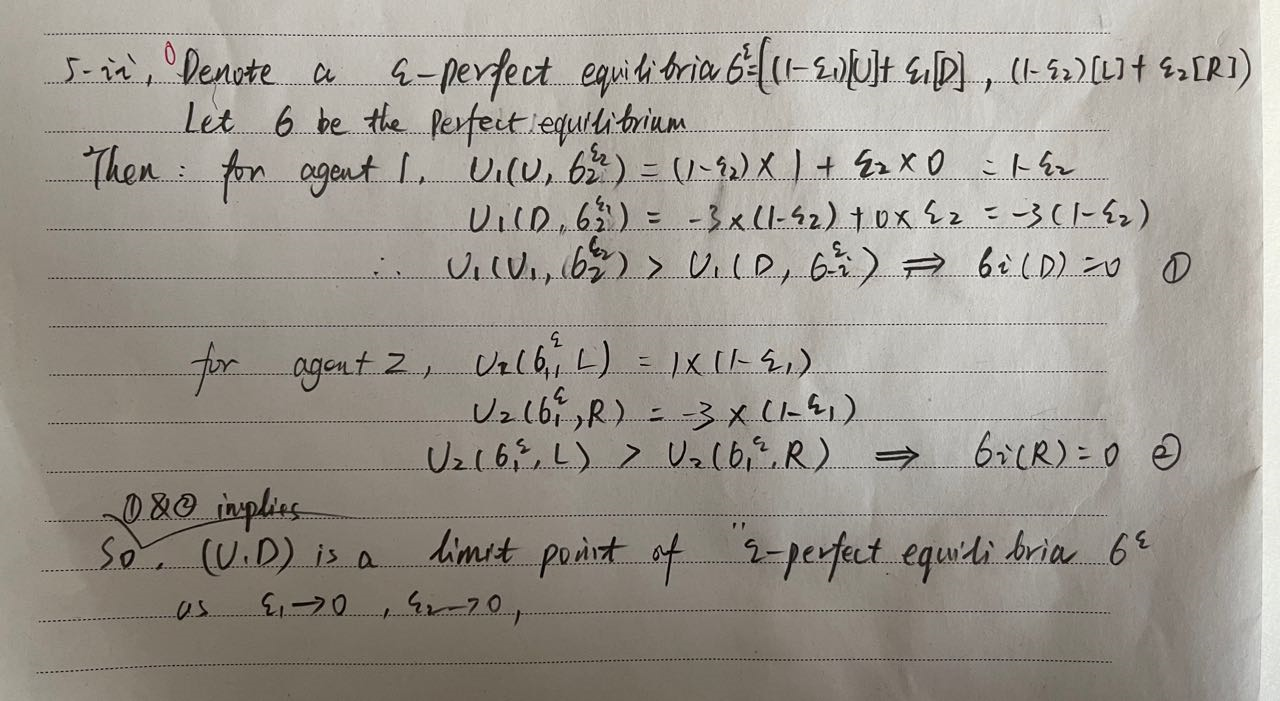 5-ii, ① Denote a ε-perfect equilibria 6^ε=((1-ε₁)[U]+ ε₁[D], (1-ε₂)[L]+ ε₂[R])
Let 6 be the perfect equilibrium
Then: for agent 1, U₁(U, 6₂^ε₂) = (1-ε₂)×1 + ε₂×0 = 1-ε₂
U₁(D, 6₂^ε₁) = -3×(1-ε₂)+0×ε₂ = -3(1-ε₂)
∴ U₁(U₁, 6₂^ε₂) > U₁(D, 6₋i^ε) ⇒ 6i(D)=0 ①
for agent 2, U₂(6₁^ε, L) = 1×(1-ε₁)
U₂(6₁^ε, R) = -3×(1-ε₁)
U₂(6₁^ε, L) > U₂(6₁^ε, R) ⇒ 6i(R)=0 ②
①&② implies
So, (U.D) is a limit point of "ε-perfect equilibria 6^ε
as ε₁→0, ε₂→0,